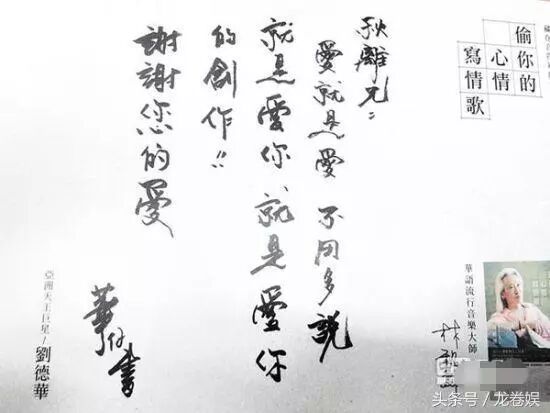 偷你的
心情
寫情歌
秋離兄：
愛就是愛 不用多說
就是愛你 就是愛你
的創作!!
謝謝您的愛
華仔書
亞洲天王巨星/劉德華
華語流行音樂大師
林秋離
头条号／龙卷娱